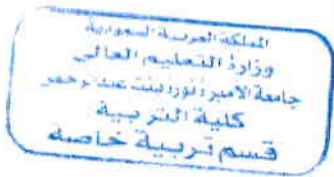 المملكة العربية السعودية
وزارة التعليم العالي
جامعة الاميرة نورة بنت عبد الرحمن
كلية التربية
قسم تربية خاصة